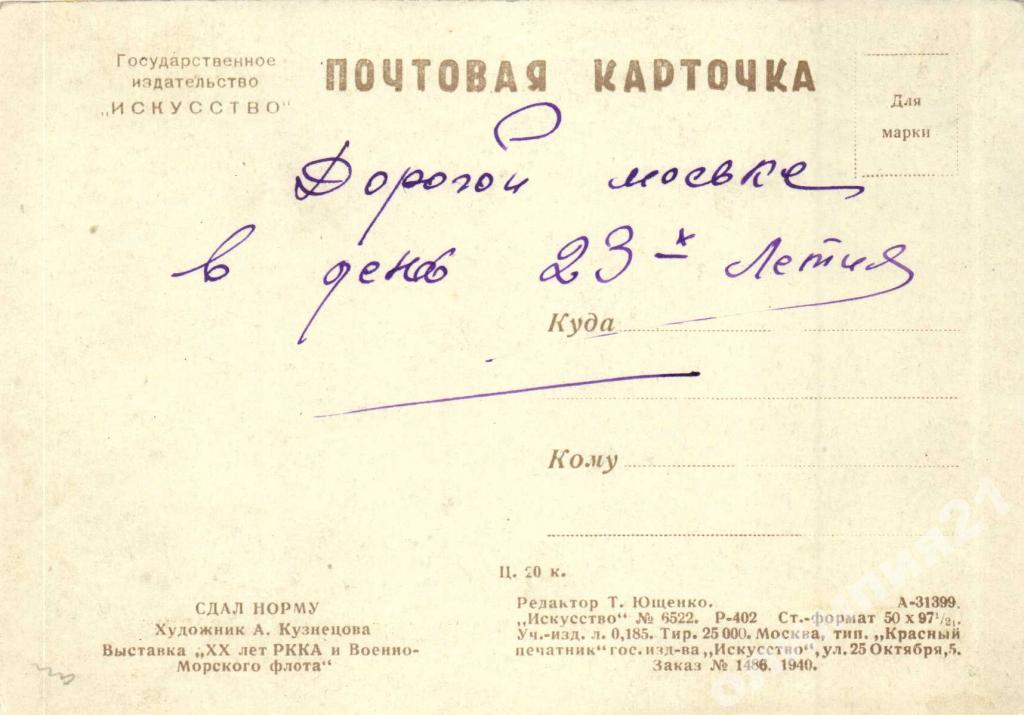 Государственное
издательство
„ИСКУССТВО"
ПОЧТОВАЯ КАРТОЧКА
Для
марки
Дорогой моське
в день 23-х летия
Куда
Кому
Ц. 20 к.
СДАЛ НОРМУ
Художник А. Кузнецова
Выставка „XX лет РККА и Военно-
Морского флота"
Редактор Т. Ющенко. А-31399.
„Искусство" № 6522. Р-402 Ст.-формат 50 х 97 1/21.
Уч.-изд. л. 0,185. Тир. 25 000. Москва, тип. „Красный
печатник" гос. изд-ва „Искусство", ул. 25 Октября, 5.
Заказ № 1486. 1940.